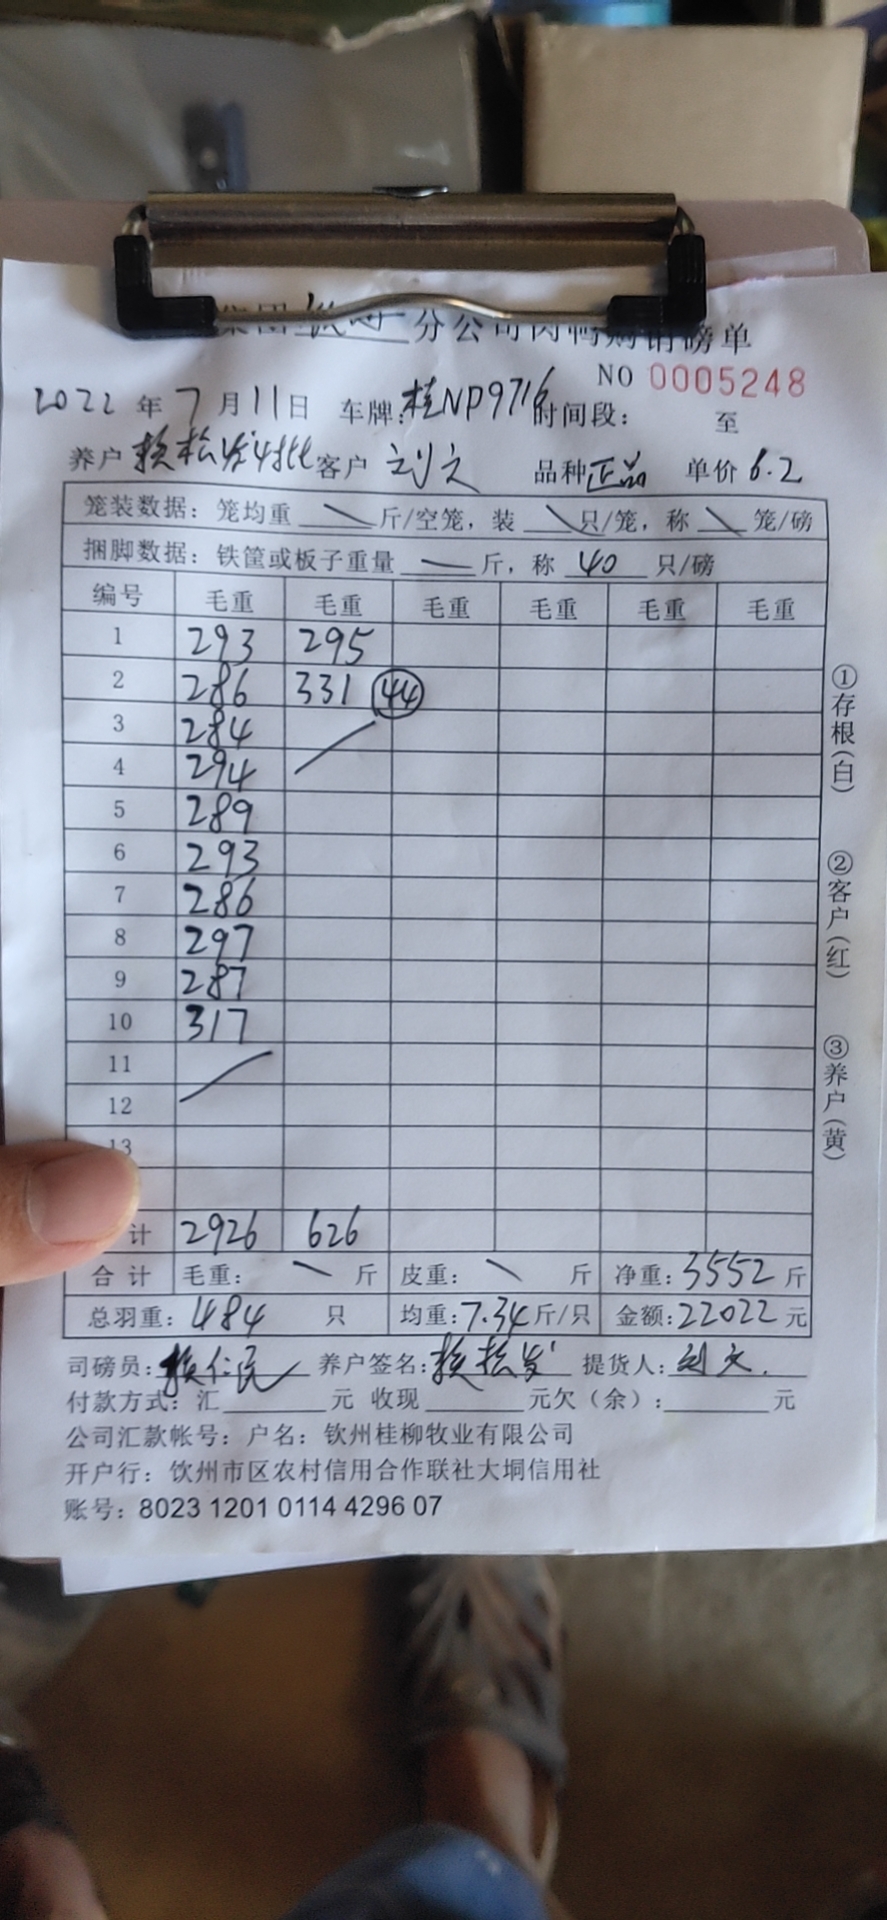 集团钦州分公司肉鸭购销磅单
NO 0005248
2022年7月11日 车牌:桂NP9716 时间段: 至
养户 赖松发4批 客户 刘文 品种 正品 单价 6.2
笼装数据:笼均重 \ 斤/空笼,装 \ 只/笼,称 \ 笼/磅
捆脚数据:铁筐或板子重量 — 斤,称 40 只/磅
编号 毛重 毛重 毛重 毛重 毛重 毛重
1 293 295
2 286 331 44
3 284
4 294
5 289
6 293
7 286
8 297
9 287
10 317
11
12
13
计 2926 626
合计 毛重: \ 斤 皮重: \ 斤 净重:3552 斤
总羽重:484 只 均重:7.34斤/只 金额:22022元
司磅员:赖仁民 养户签名:赖松发 提货人:刘文.
付款方式:汇 元 收现 元欠(余): 元
公司汇款帐号:户名:钦州桂柳牧业有限公司
开户行:饮州市区农村信用合作联社大垌信用社
账号:8023 1201 0114 4296 07
①存根(白)
②客户(红)
③养户(黄)